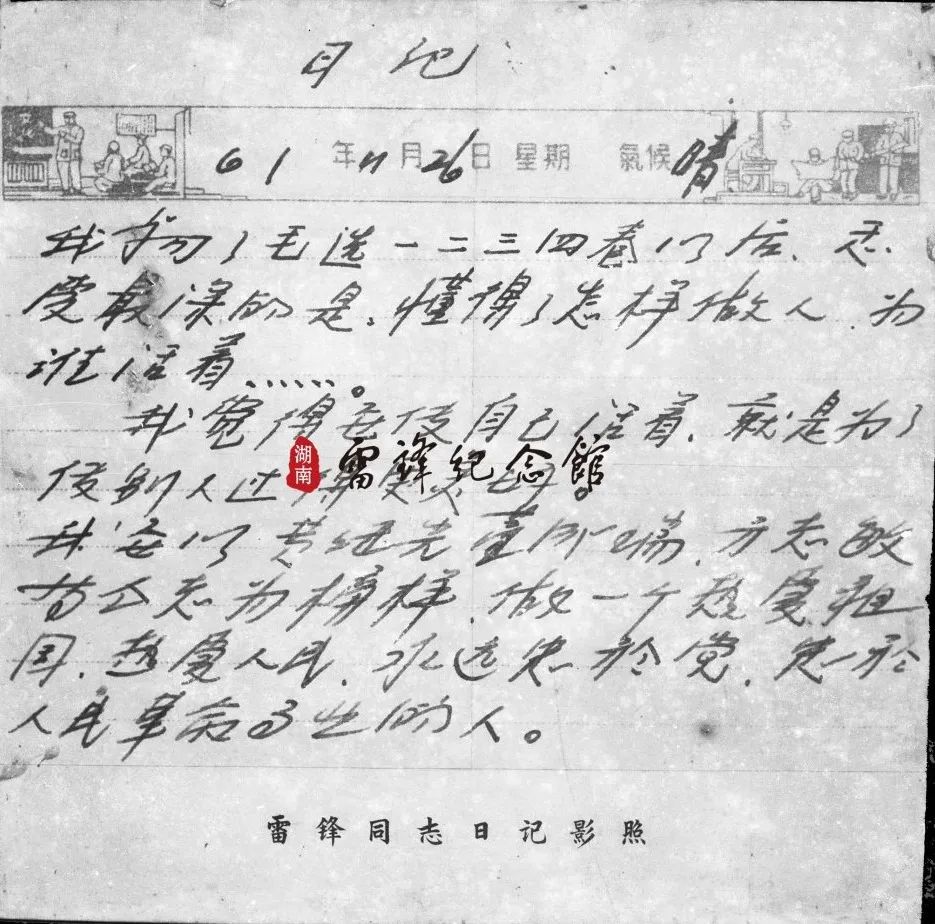 日记
61年11月26日 星期 氣候 晴
我学习了毛选一二三四卷以后、感
受最深的是、懂得了怎样做人、为
谁活着......。
我觉得要使自己活着、就是为了
湖南 雷鋒纪念館
使别人过得更美好。
我要以黄继光董存瑞、方志敏
等同志为榜样、做一个热爱祖
国、热爱人民、永远忠於党、忠於
人民革命事业的人。
雷锋同志日记影照